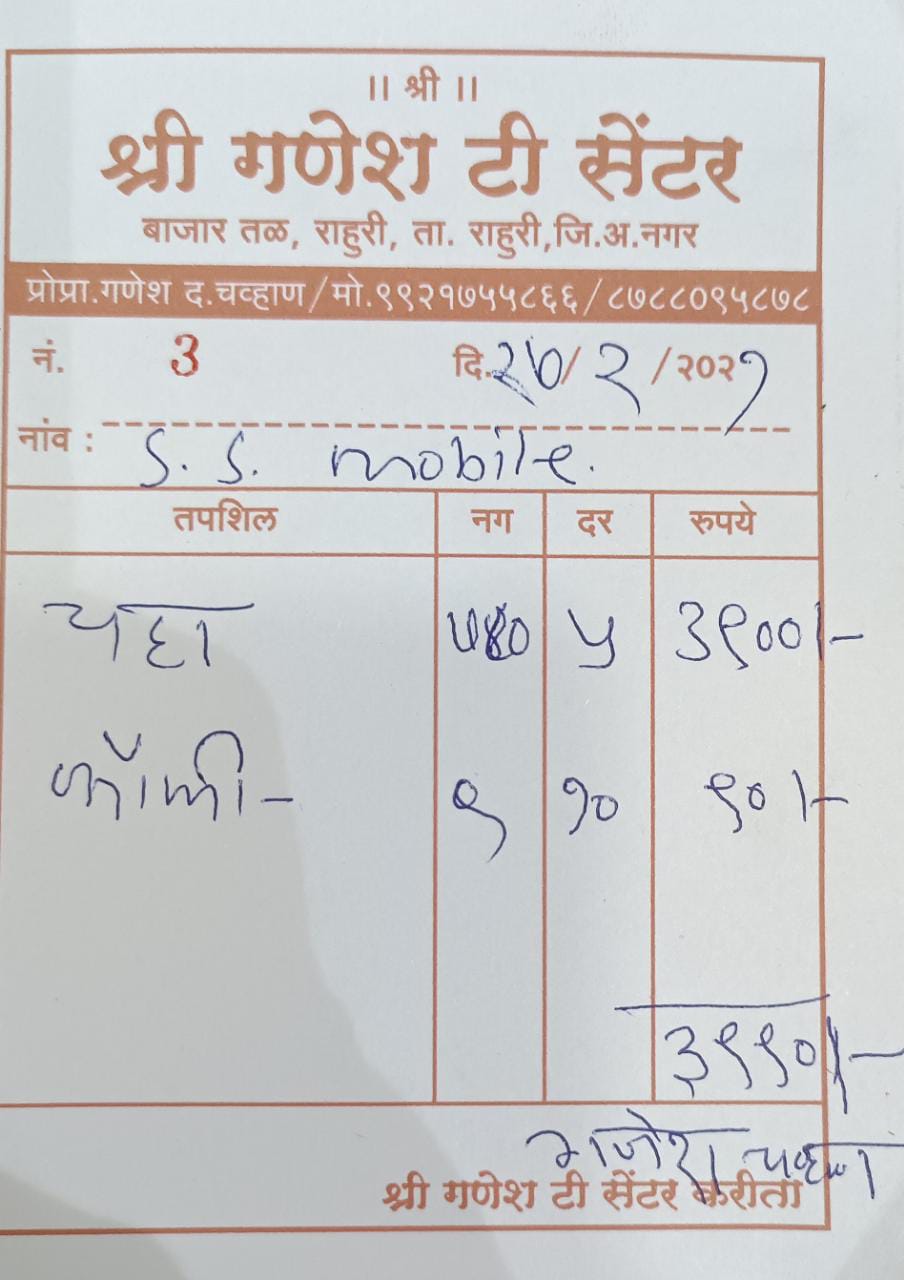 ।। श्री ।।
श्री गणेश टी सेंटर
बाजार तळ, राहुरी, ता. राहुरी,जि.अ.नगर
प्रोप्रा.गणेश द.चव्हाण/मो.९९२१७५५८६६/८७८८०९५८७८
नं. 3 दि. /२/२०२
नांव : S. S. mobile.
तपशिल नग दर रुपये
चहा ५ ३९००/-
कॉफी- ९ १० ९०/-
३९९०/-
गणेश चव्हाण
श्री गणेश टी सेंटर करीता